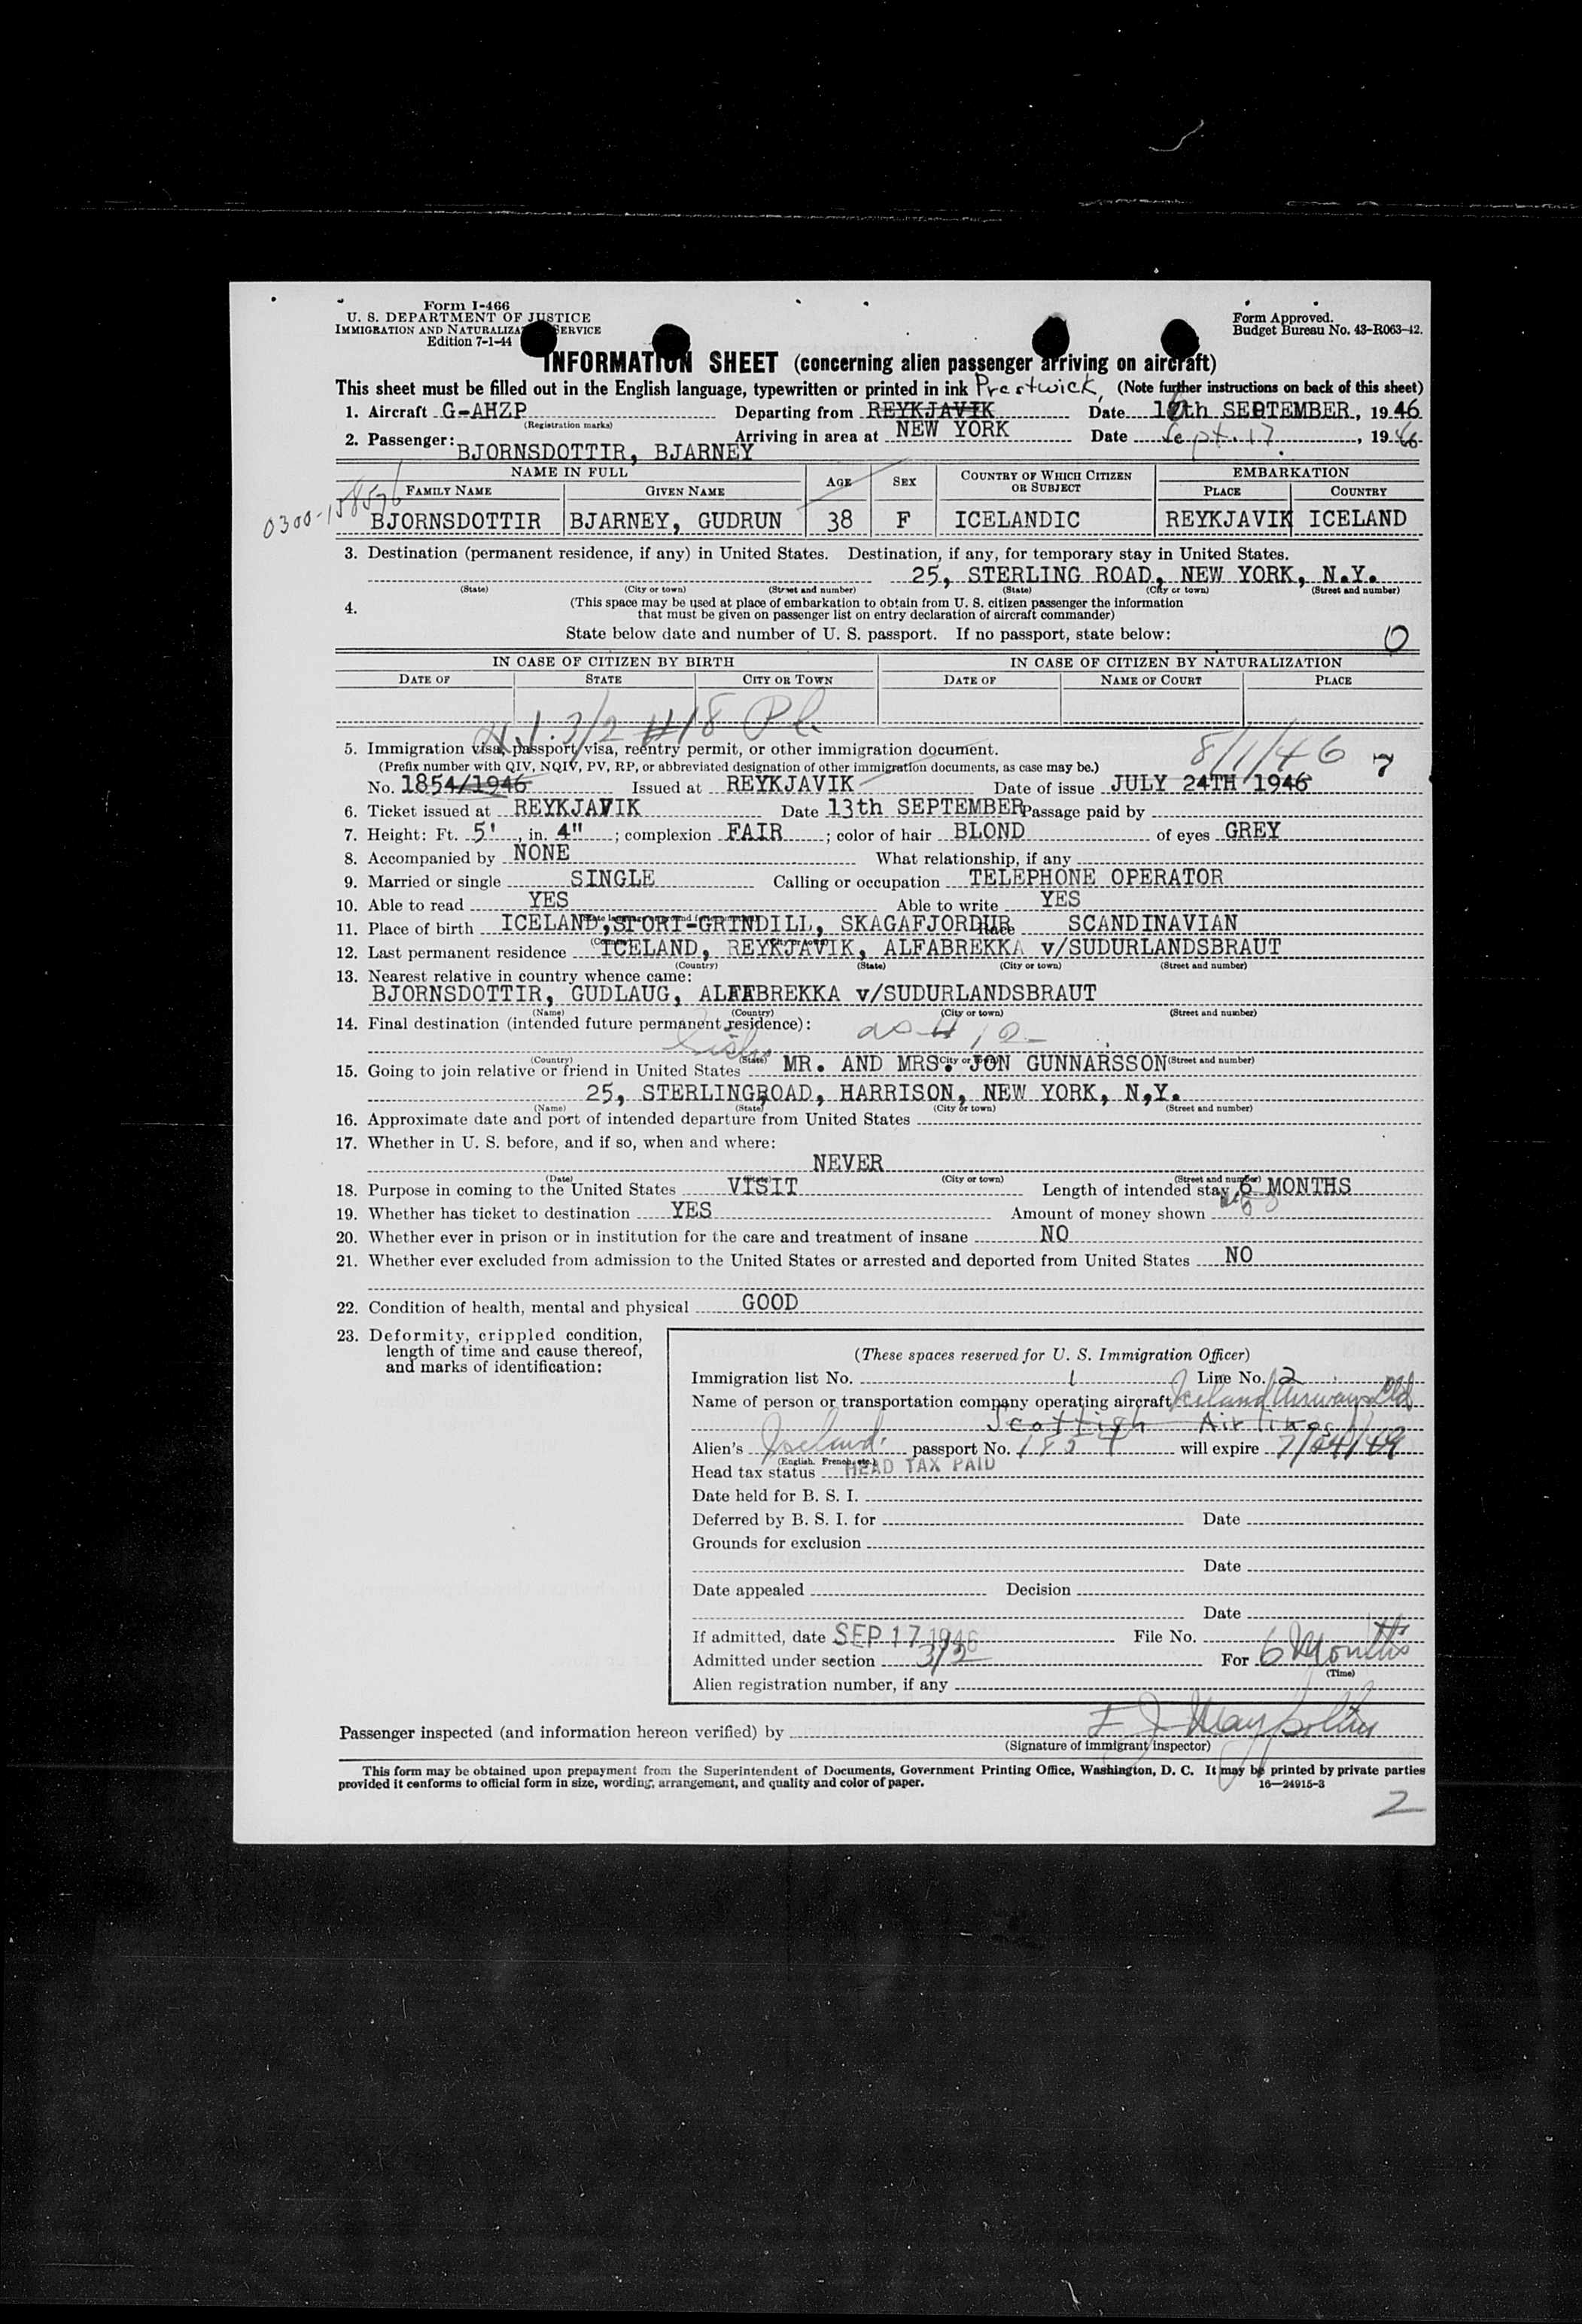 Form I-466
U. S. DEPARTMENT OF JUSTICE
IMMIGRATION AND NATURALIZA SERVICE
Edition 7-1-44
Form Approved.
Budget Bureau No. 43-R063-42.
INFORMATION SHEET (concerning alien passenger arriving on aircraft)
This sheet must be filled out in the English language, typewritten or printed in ink Prestwick, (Note further instructions on back of this sheet)
1. Aircraft G-AHZP Departing from REYKJAVIK Date 16th SEPTEMBER, 1946
(Registration marks)
2. Passenger: BJORNSDOTTIR, BJARNEY Arriving in area at NEW YORK Date Sept. 17, 1946
NAME IN FULL AGE SEX COUNTRY OF WHICH CITIZEN OR SUBJECT EMBARKATION
FAMILY NAME GIVEN NAME PLACE COUNTRY
0300-158576
BJORNSDOTTIR BJARNEY, GUDRUN 38 F ICELANDIC REYKJAVIK ICELAND
3. Destination (permanent residence, if any) in United States. Destination, if any, for temporary stay in United States.
25, STERLING ROAD, NEW YORK, N.Y.
(State) (City or town) (Street and number) (State) (City or town) (Street and number)
4. (This space may be used at place of embarkation to obtain from U. S. citizen passenger the information
that must be given on passenger list on entry declaration of aircraft commander)
State below date and number of U. S. passport. If no passport, state below: 0
IN CASE OF CITIZEN BY BIRTH IN CASE OF CITIZEN BY NATURALIZATION
DATE OF STATE CITY OR TOWN DATE OF NAME OF COURT PLACE
3/2 #18
5. Immigration visa, passport visa, reentry permit, or other immigration document. 8/1/46 7
(Prefix number with QIV, NQIV, PV, RP, or abbreviated designation of other immigration documents, as case may be.)
No. 1854/1946 Issued at REYKJAVIK Date of issue JULY 24TH 1946
6. Ticket issued at REYKJAVIK Date 13th SEPTEMBER Passage paid by
7. Height: Ft. 5', in. 4"; complexion FAIR; color of hair BLOND of eyes GREY
8. Accompanied by NONE What relationship, if any
9. Married or single SINGLE Calling or occupation TELEPHONE OPERATOR
10. Able to read YES Able to write YES
11. Place of birth ICELAND, STORI-GRINDILL, SKAGAFJORDUR Race SCANDINAVIAN
12. Last permanent residence ICELAND, REYKJAVIK, ALFABREKKA v/SUDURLANDSBRAUT
(Country) (State) (City or town) (Street and number)
13. Nearest relative in country whence came:
BJORNSDOTTIR, GUDLAUG, ALFABREKKA v/SUDURLANDSBRAUT
(Name) (Country) (City or town) (Street and number)
14. Final destination (intended future permanent residence): as # 12
(Country) (State) (City or town) (Street and number)
15. Going to join relative or friend in United States MR. AND MRS. JON GUNNARSSON
25, STERLINGROAD, HARRISON, NEW YORK, N,Y.
(Name) (State) (City or town) (Street and number)
16. Approximate date and port of intended departure from United States
17. Whether in U. S. before, and if so, when and where:
NEVER
(Date) (State) (City or town) (Street and number)
18. Purpose in coming to the United States VISIT Length of intended stay 6 MONTHS
19. Whether has ticket to destination YES Amount of money shown
20. Whether ever in prison or in institution for the care and treatment of insane NO
21. Whether ever excluded from admission to the United States or arrested and deported from United States NO
22. Condition of health, mental and physical GOOD
23. Deformity, crippled condition,
length of time and cause thereof,
and marks of identification:
(These spaces reserved for U. S. Immigration Officer)
Immigration list No. 1 Line No. 2
Name of person or transportation company operating aircraft Iceland Airways Ltd
Scottish Airlines
Alien's Iceland. passport No. 1854 will expire 7/24/49
(English, French, etc.)
Head tax status HEAD TAX PAID
Date held for B. S. I.
Deferred by B. S. I. for Date
Grounds for exclusion
Date
Date appealed Decision
Date
If admitted, date SEP 17 1946 File No.
Admitted under section 3/2 For 6 Months
(Time)
Alien registration number, if any
Passenger inspected (and information hereon verified) by
(Signature of immigrant inspector)
This form may be obtained upon prepayment from the Superintendent of Documents, Government Printing Office, Washington, D. C. It may be printed by private parties
provided it conforms to official form in size, wording, arrangement, and quality and color of paper. 16—24915-3
2